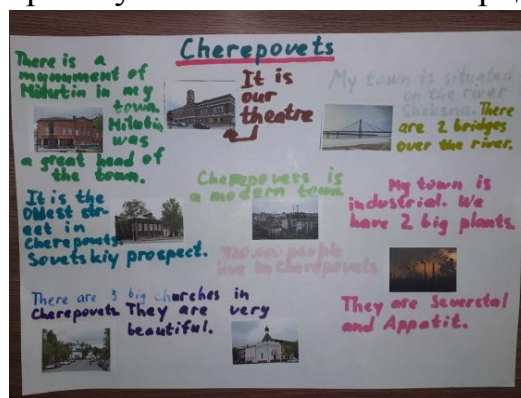 Cherepovets
There is a
mynument of
Milutin in my
town.
Milutin
was
a great head of
the town.
It is
our
theatre
My town is situated
on the river
Sheksna. There
are 2 bridges
over the river.
It is the
oldest str
eet in
Cherepovets.
Sovetskiy prospect.
Cherepovets is
a modern town.
people
live in Cherepovets
My town is
industrial. We
have 2 big plants.
They are Severstal
and Appatit.
There are 3 big churches in
Cherepovets. They are very
beautiful.